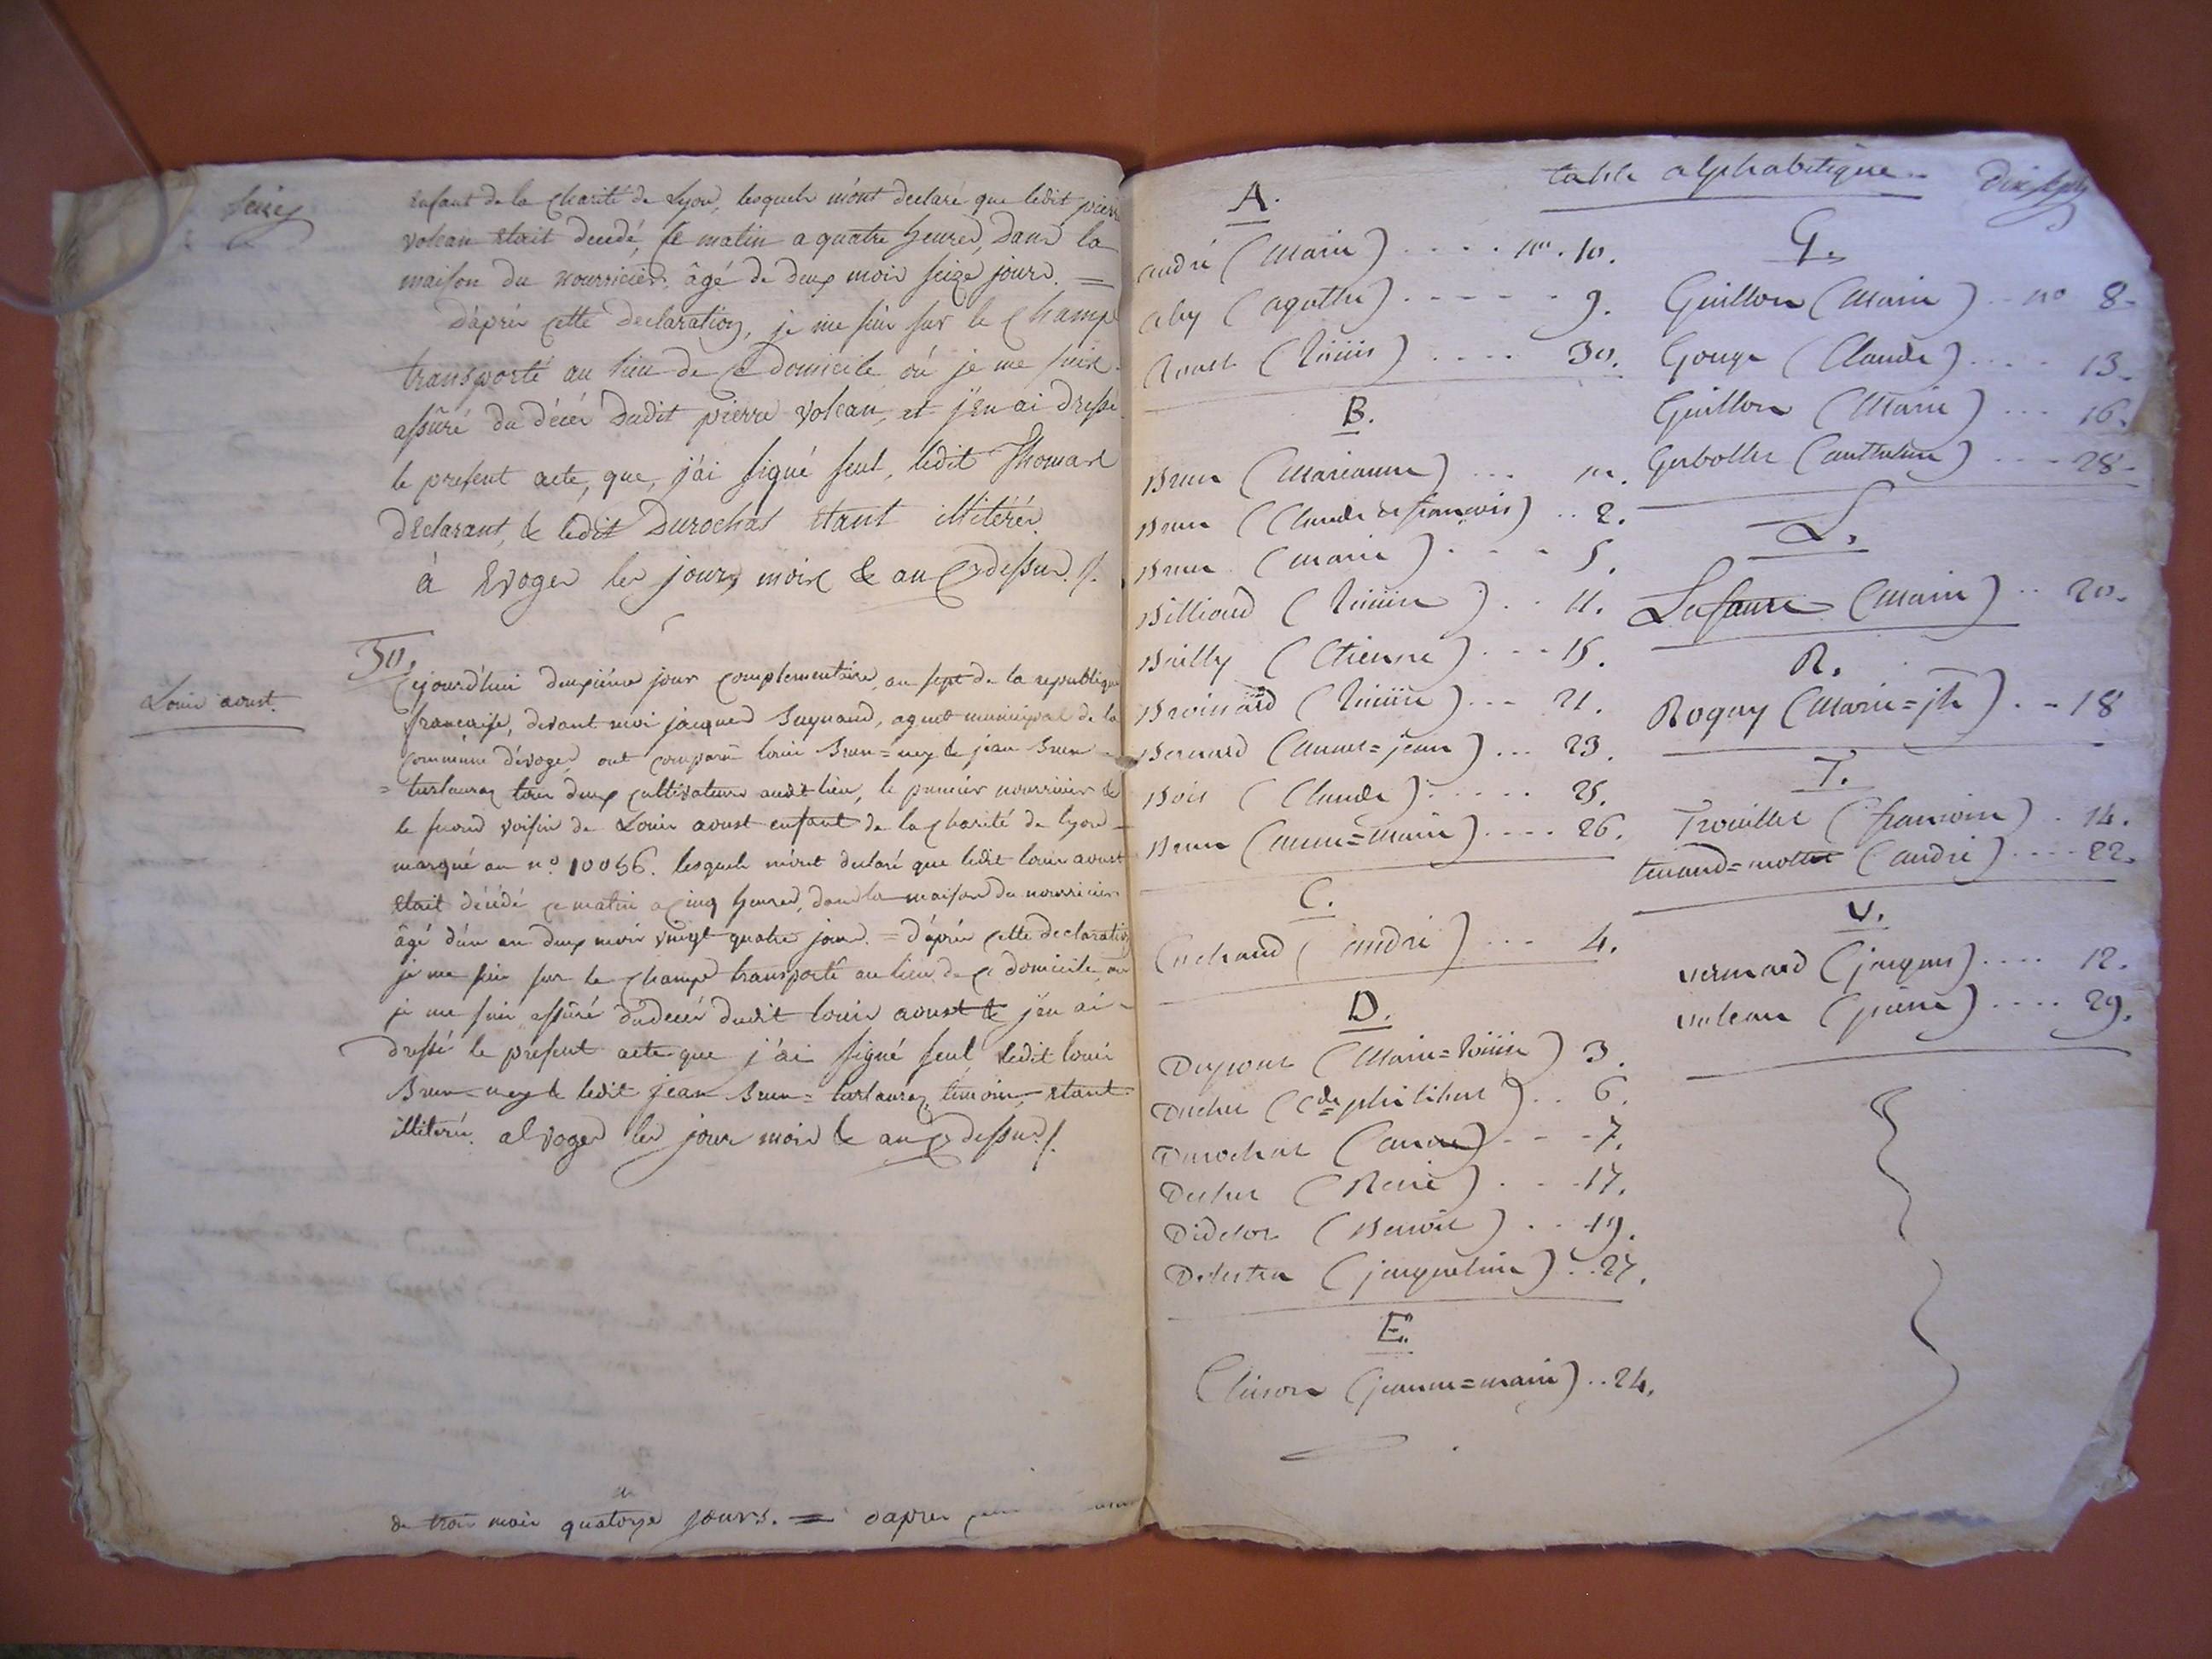 Seize
enfant de la charité de Lyon, lesquels m'ont declaré que ledit pierre
volcan etait decedé, ce matin a quatre heures, dans la
maison du nourricier, âgé de deux mois seize jours. =
D'aprés cette declaration, je me suis sur le champs
transporté au lieu de ce domicile où je me suis
assûré du décès dudit pierre volcan, et j'en ai dressé
le present acte, que j'ai signé seul, ledit Thomas
declarant, & ledit Durochat étant illitérés
à Evoges les jours mois & an cy dessus./.
30.
Louis aoust.
Cejourd'hui deuxiéme jour complementaire, an sept de la republique
française, devant moi jacques Buynand, agent municipal de la
commune d'évoges, ont comparu louis Brun=ney & jean Brun
= turlauraz tous deux cultivateurs audit lieu, le premier nourricier &
le second voisin de Louis aoust enfant de la charité de lyon
marqué au n.º 10056. lesquels m'ont declaré que ledit louis aoust
était décédé ce matin a cinq heures, dans la maison du nourricier
âgé d'un an deux mois vingt quatre jours. = d'aprés cette declaration
je me suis sur le champs transporté au lieu de ce domicile où
je me suis assûré du decès dudit louis aoust & j'en ai
dressé le present acte que j'ai signé seul, ledit louis
Brun=ney & ledit jean Brun=turlauraz, temoins, étant
illiterés. a Evoges les jour mois & an cy dessus./.
de trois mois quatorze jours. = d'apres
table alphabetique
dix sept
A.
andré (Marie) .... nº. 10.
aby (agathe) ..... 9.
Aoust (Louis) .... 30.
B.
Brun (Marianne) ... 1er.
Brun (Claude et françois) .. 2.
Brun (marie) .... 5.
Billiard (Louise) .. 11.
Bailly (Etienne) ... 15.
Broissard (Louise) ... 21.
Bernard (annet=jean) ... 23.
Bois (Claude) ..... 25.
Brun (anne=marie) .... 26.
C.
Cochand (andré) ... 4.
D.
Dupont (Marie=Louise) 3.
Duchet (Cde philibert) .. 6.
Durochat (anne) .... 7.
(René) .... 17.
(Benoit) ... 19.
(jacqueline) .. 27.
E.
(jeanne=marie) .. 24.
G.
Guillon (Marie) .. nº 8.
Gouge (Claude) .... 13.
Guillon (Marie) ... 16.
Gerbollet (anthelme) .... 28.
L.
Lafaure (Marie) .. 20.
R.
Roguy (Marie=jh) .. 18
T.
Trouillet (françois) . 14.
tenand=mottet (andré) .... 22.
V.
vernard (jacques) .... 12.
volcan (pierre) .... 29.